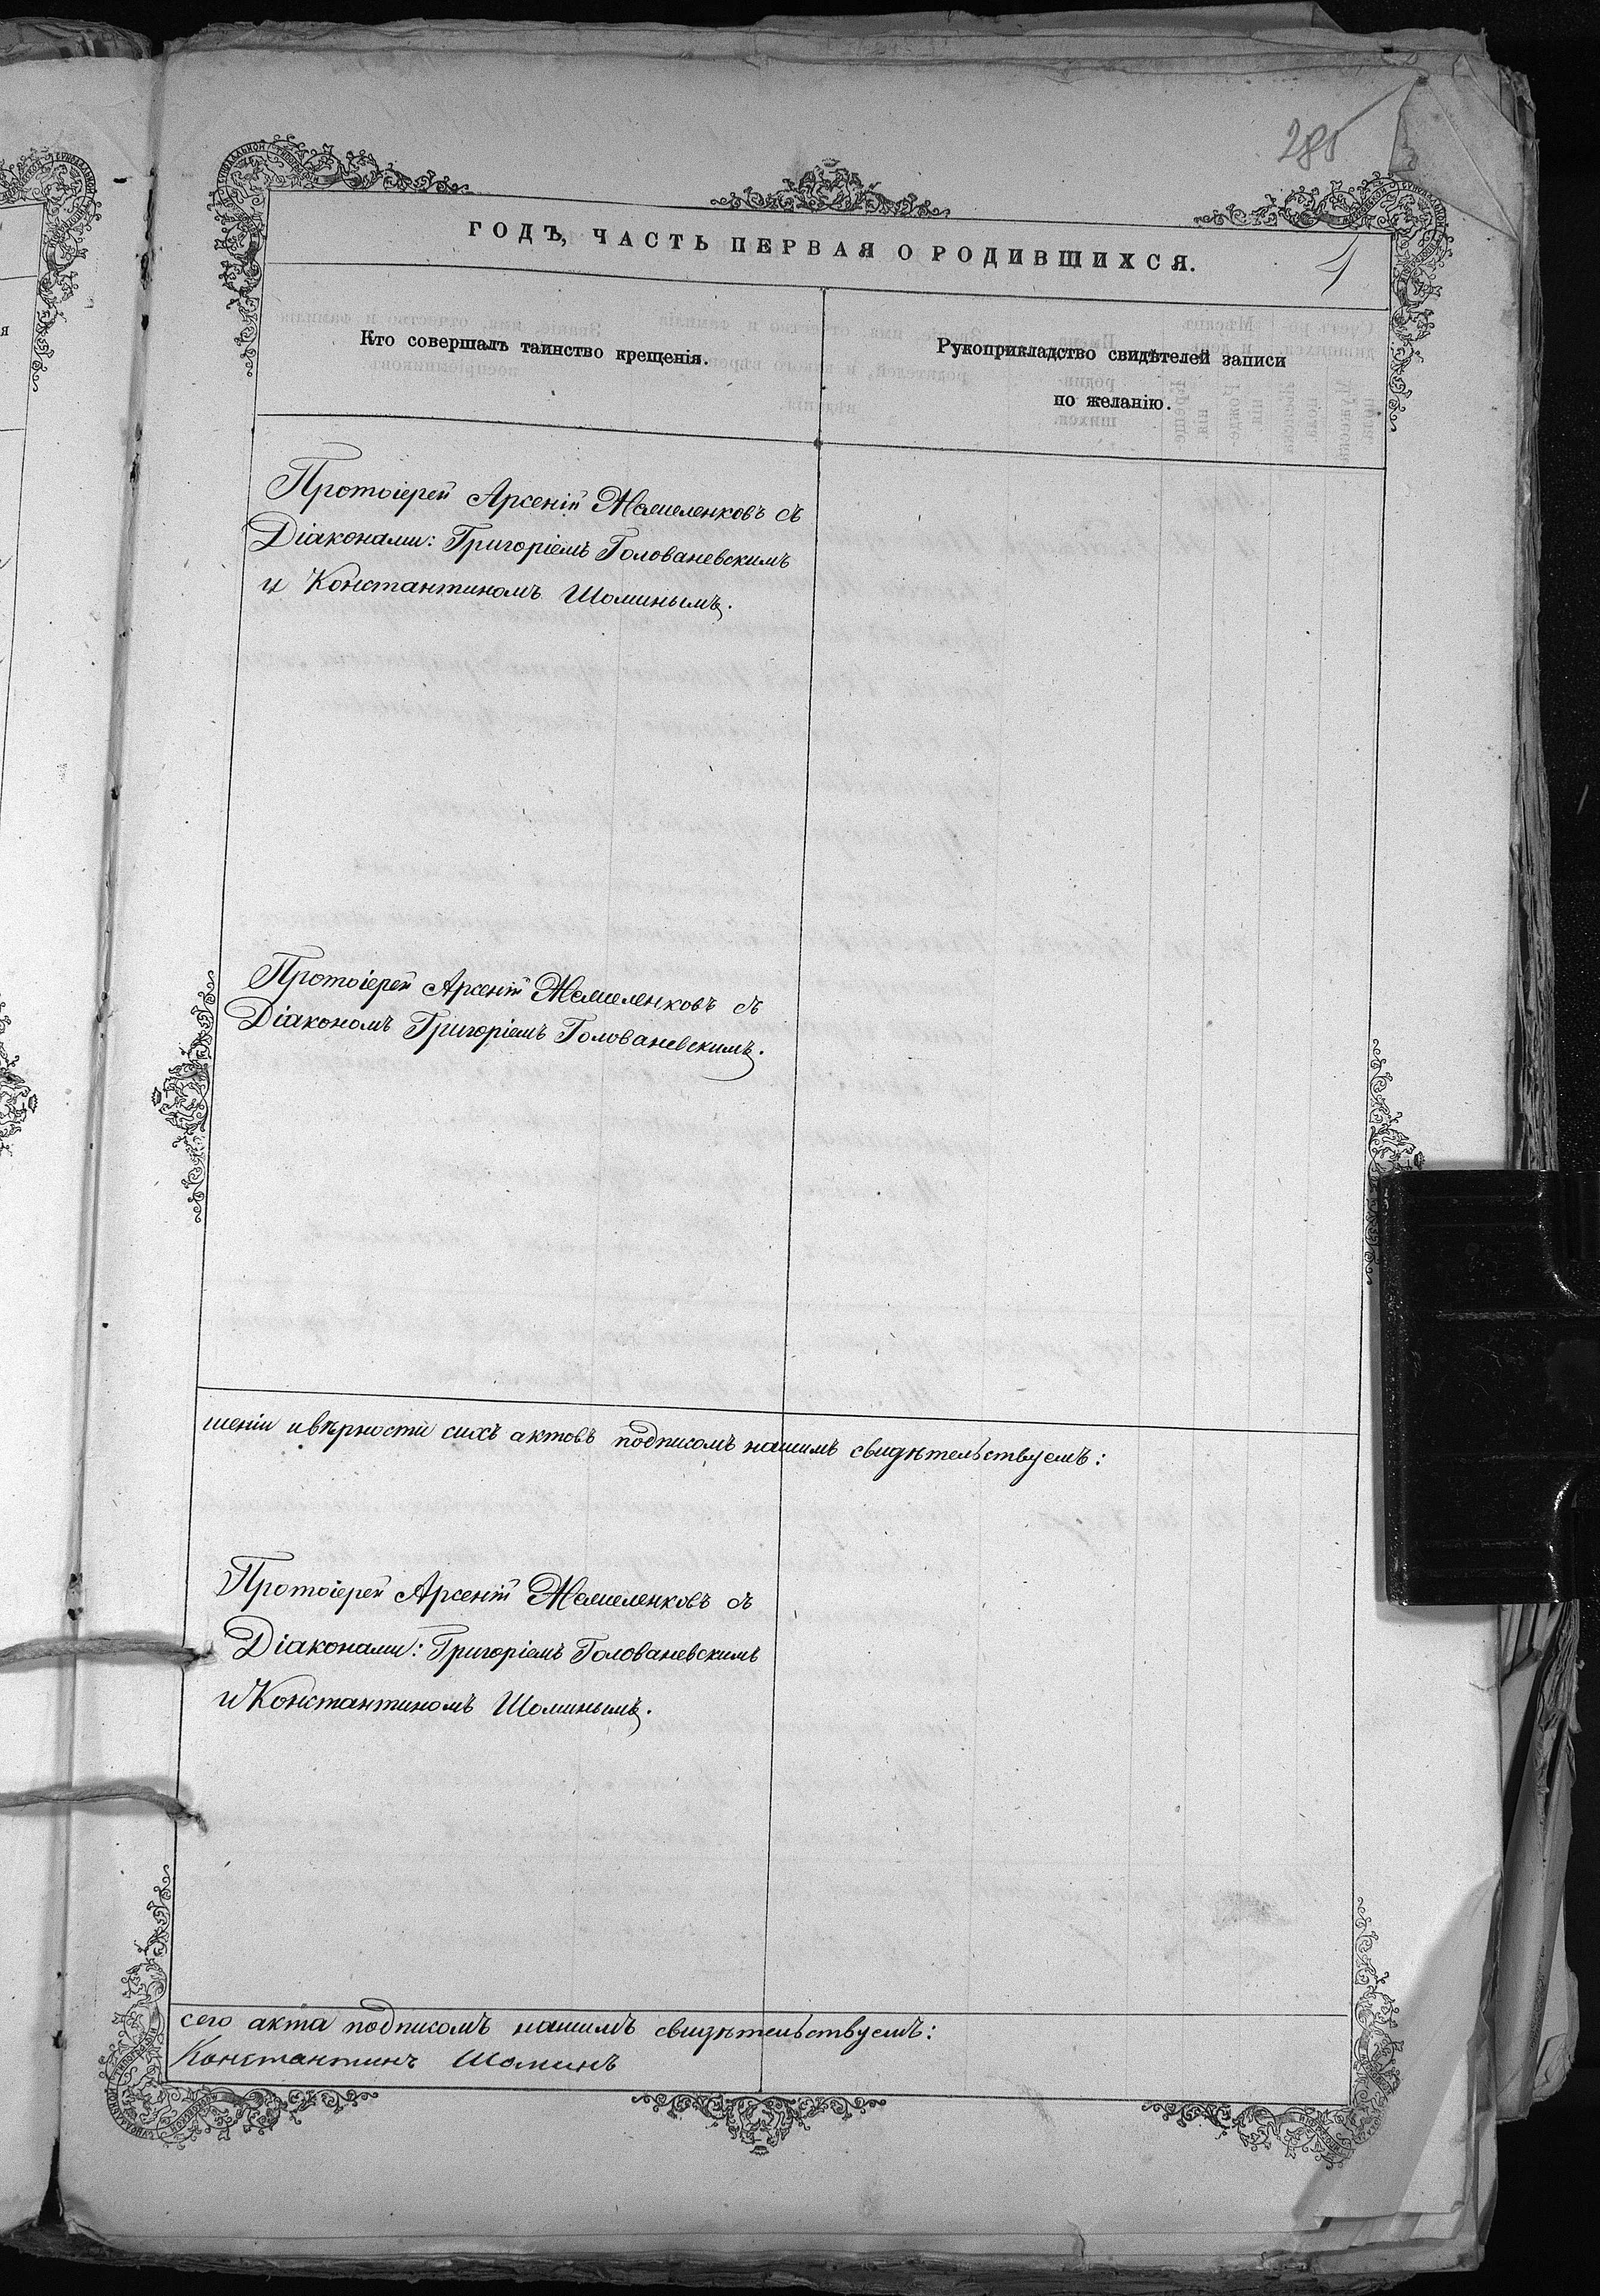 285
ГОДЪ, ЧАСТЬ ПЕРВАЯ О РОДИВШИХСЯ.
1
Кто совершалъ таинство крещенія.
Рукоприкладство свидѣтелей записи
по желанію.
Протоіерей Арсеній Жемеленковъ съ
Діаконами: Григоріемъ Голованевскимъ
и Константиномъ Шоминымъ.
Протоіерей Арсеній Жемеленковъ съ
Діакономъ Григоріемъ Голованевскимъ.
шеніи и вѣрности сихъ актовъ подписомъ нашимъ свидѣтельствуемъ:
Протоіерей Арсеній Жемеленковъ съ
Діаконами: Григоріемъ Голованевскимъ
и Константиномъ Шоминымъ.
сего акта подписомъ нашимъ свидѣтельствуемъ:
Константинъ Шоминъ